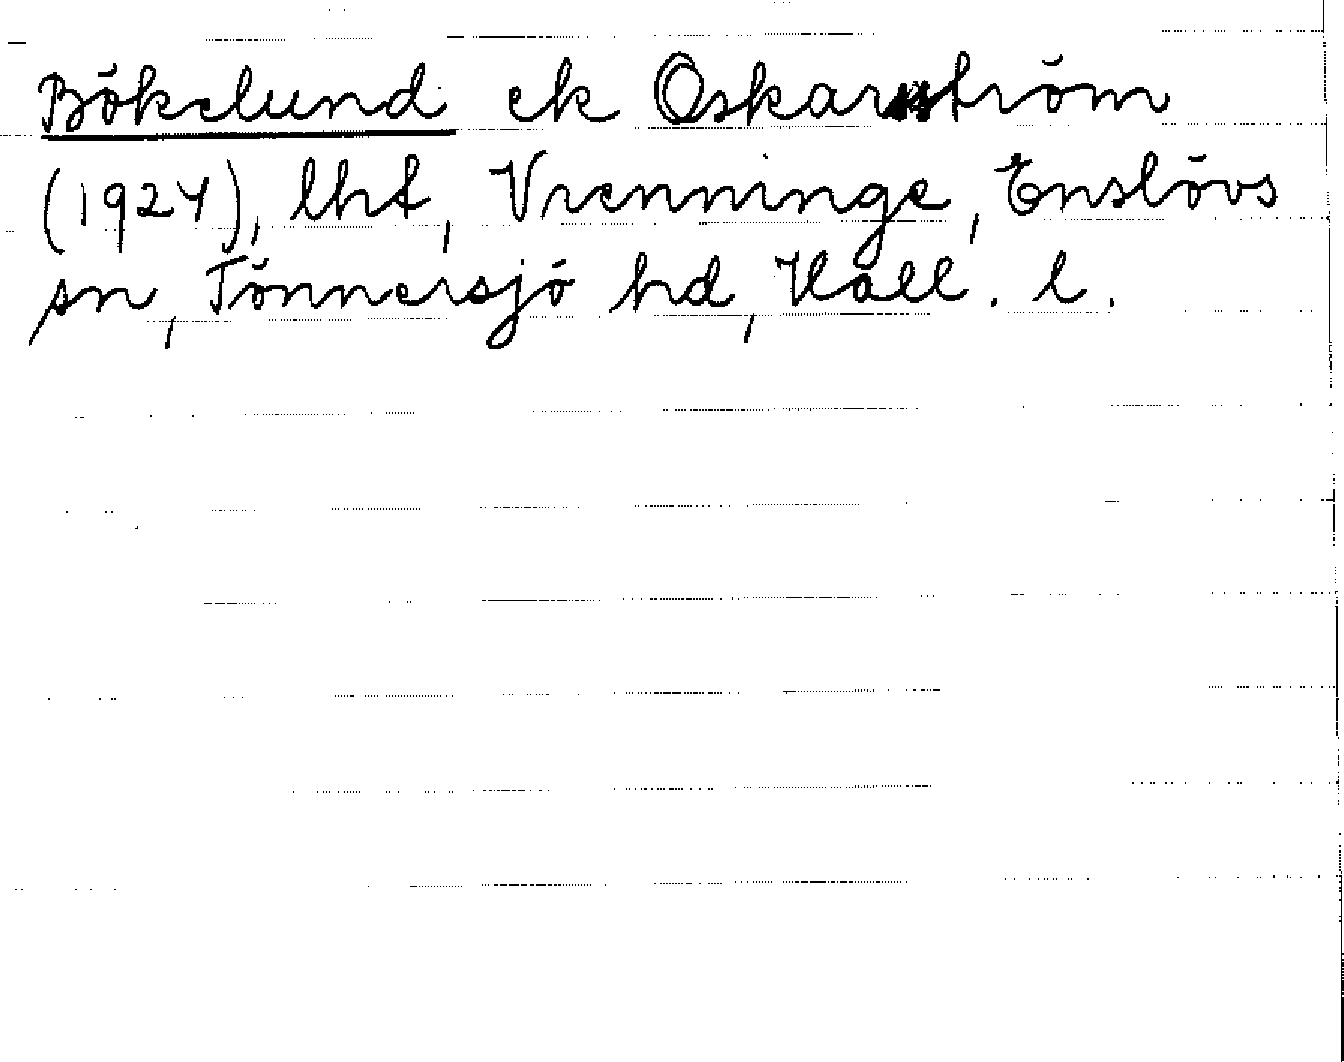 Bökelund ek Oskarström
(1924), lht, Vrenninge, Enslövs
sn, Tönnersjö hd, Hall. l.